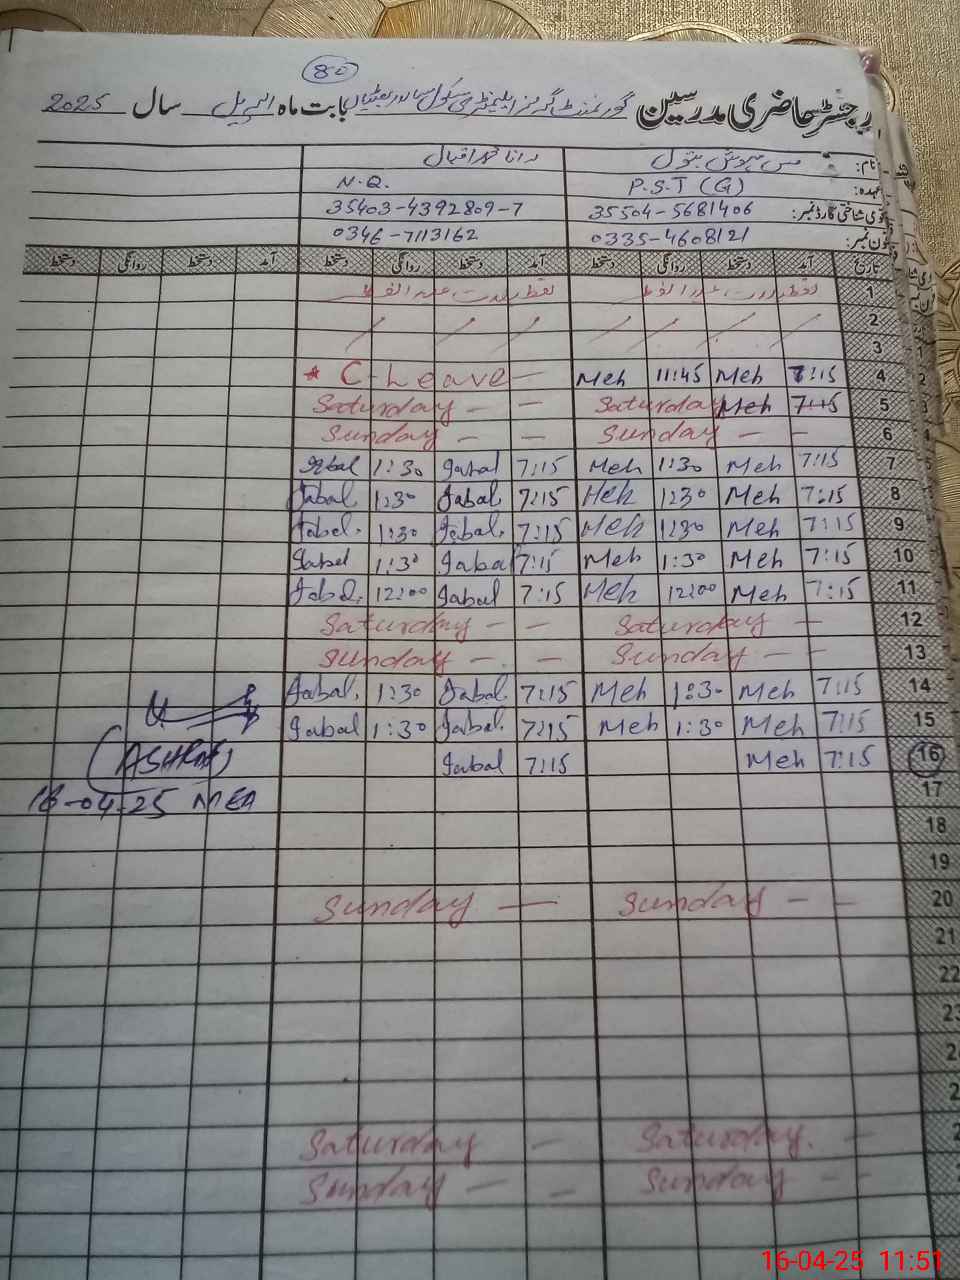 80
رجسٹر حاضری مدرسین گورنمنٹ گرلز ایلیمنٹری سکول بابت ماہ اپریل سال 2025
نام: مس مہوش بتول رانا محمد اقبال
عہدہ: P.S.T (G) N.Q.
قومی شناختی کارڈ نمبر: 35504-5681406 35403-4392809-7
فون نمبر: 0335-4608121 0346-7113162
تاریخ آمد دستخط روانگی دستخط آمد دستخط روانگی دستخط آمد دستخط روانگی دستخط
1
2
3
4 7:15 Meh 11:45 Meh * C-Leave —
5 7:15 Meh Saturday Saturday — —
6 Sunday — — Sunday — —
7 7:15 Meh 1:30 Meh 7:15 Iqbal 1:30 Iqbal
8 7:15 Meh 1:30 Meh 7:15 Iqbal 1:30 Iqbal
9 7:15 Meh 1:30 Meh 7:15 Iqbal. 1:30 Iqbal.
10 7:15 Meh 1:30 Meh 7:15 Iqbal 1:30 Iqbal
11 7:15 Meh 12:00 Meh 7:15 Iqbal 12:00 Iqbal.
12 Saturday — Saturday — —
13 Sunday — — Sunday — —
14 7:15 Meh 1:30 Meh 7:15 Iqbal. 1:30 Iqbal.
15 7:15 Meh 1:30 Meh 7:15 Iqbal 1:30 Iqbal
16 7:15 Meh 7:15 Iqbal
(ASHRAF)
16-04-25 MEA
17
18
19
20 Sunday — — Sunday —
21
22
23
Saturday. — Saturday —
Sunday — — Sunday — —
16-04-25 11:51